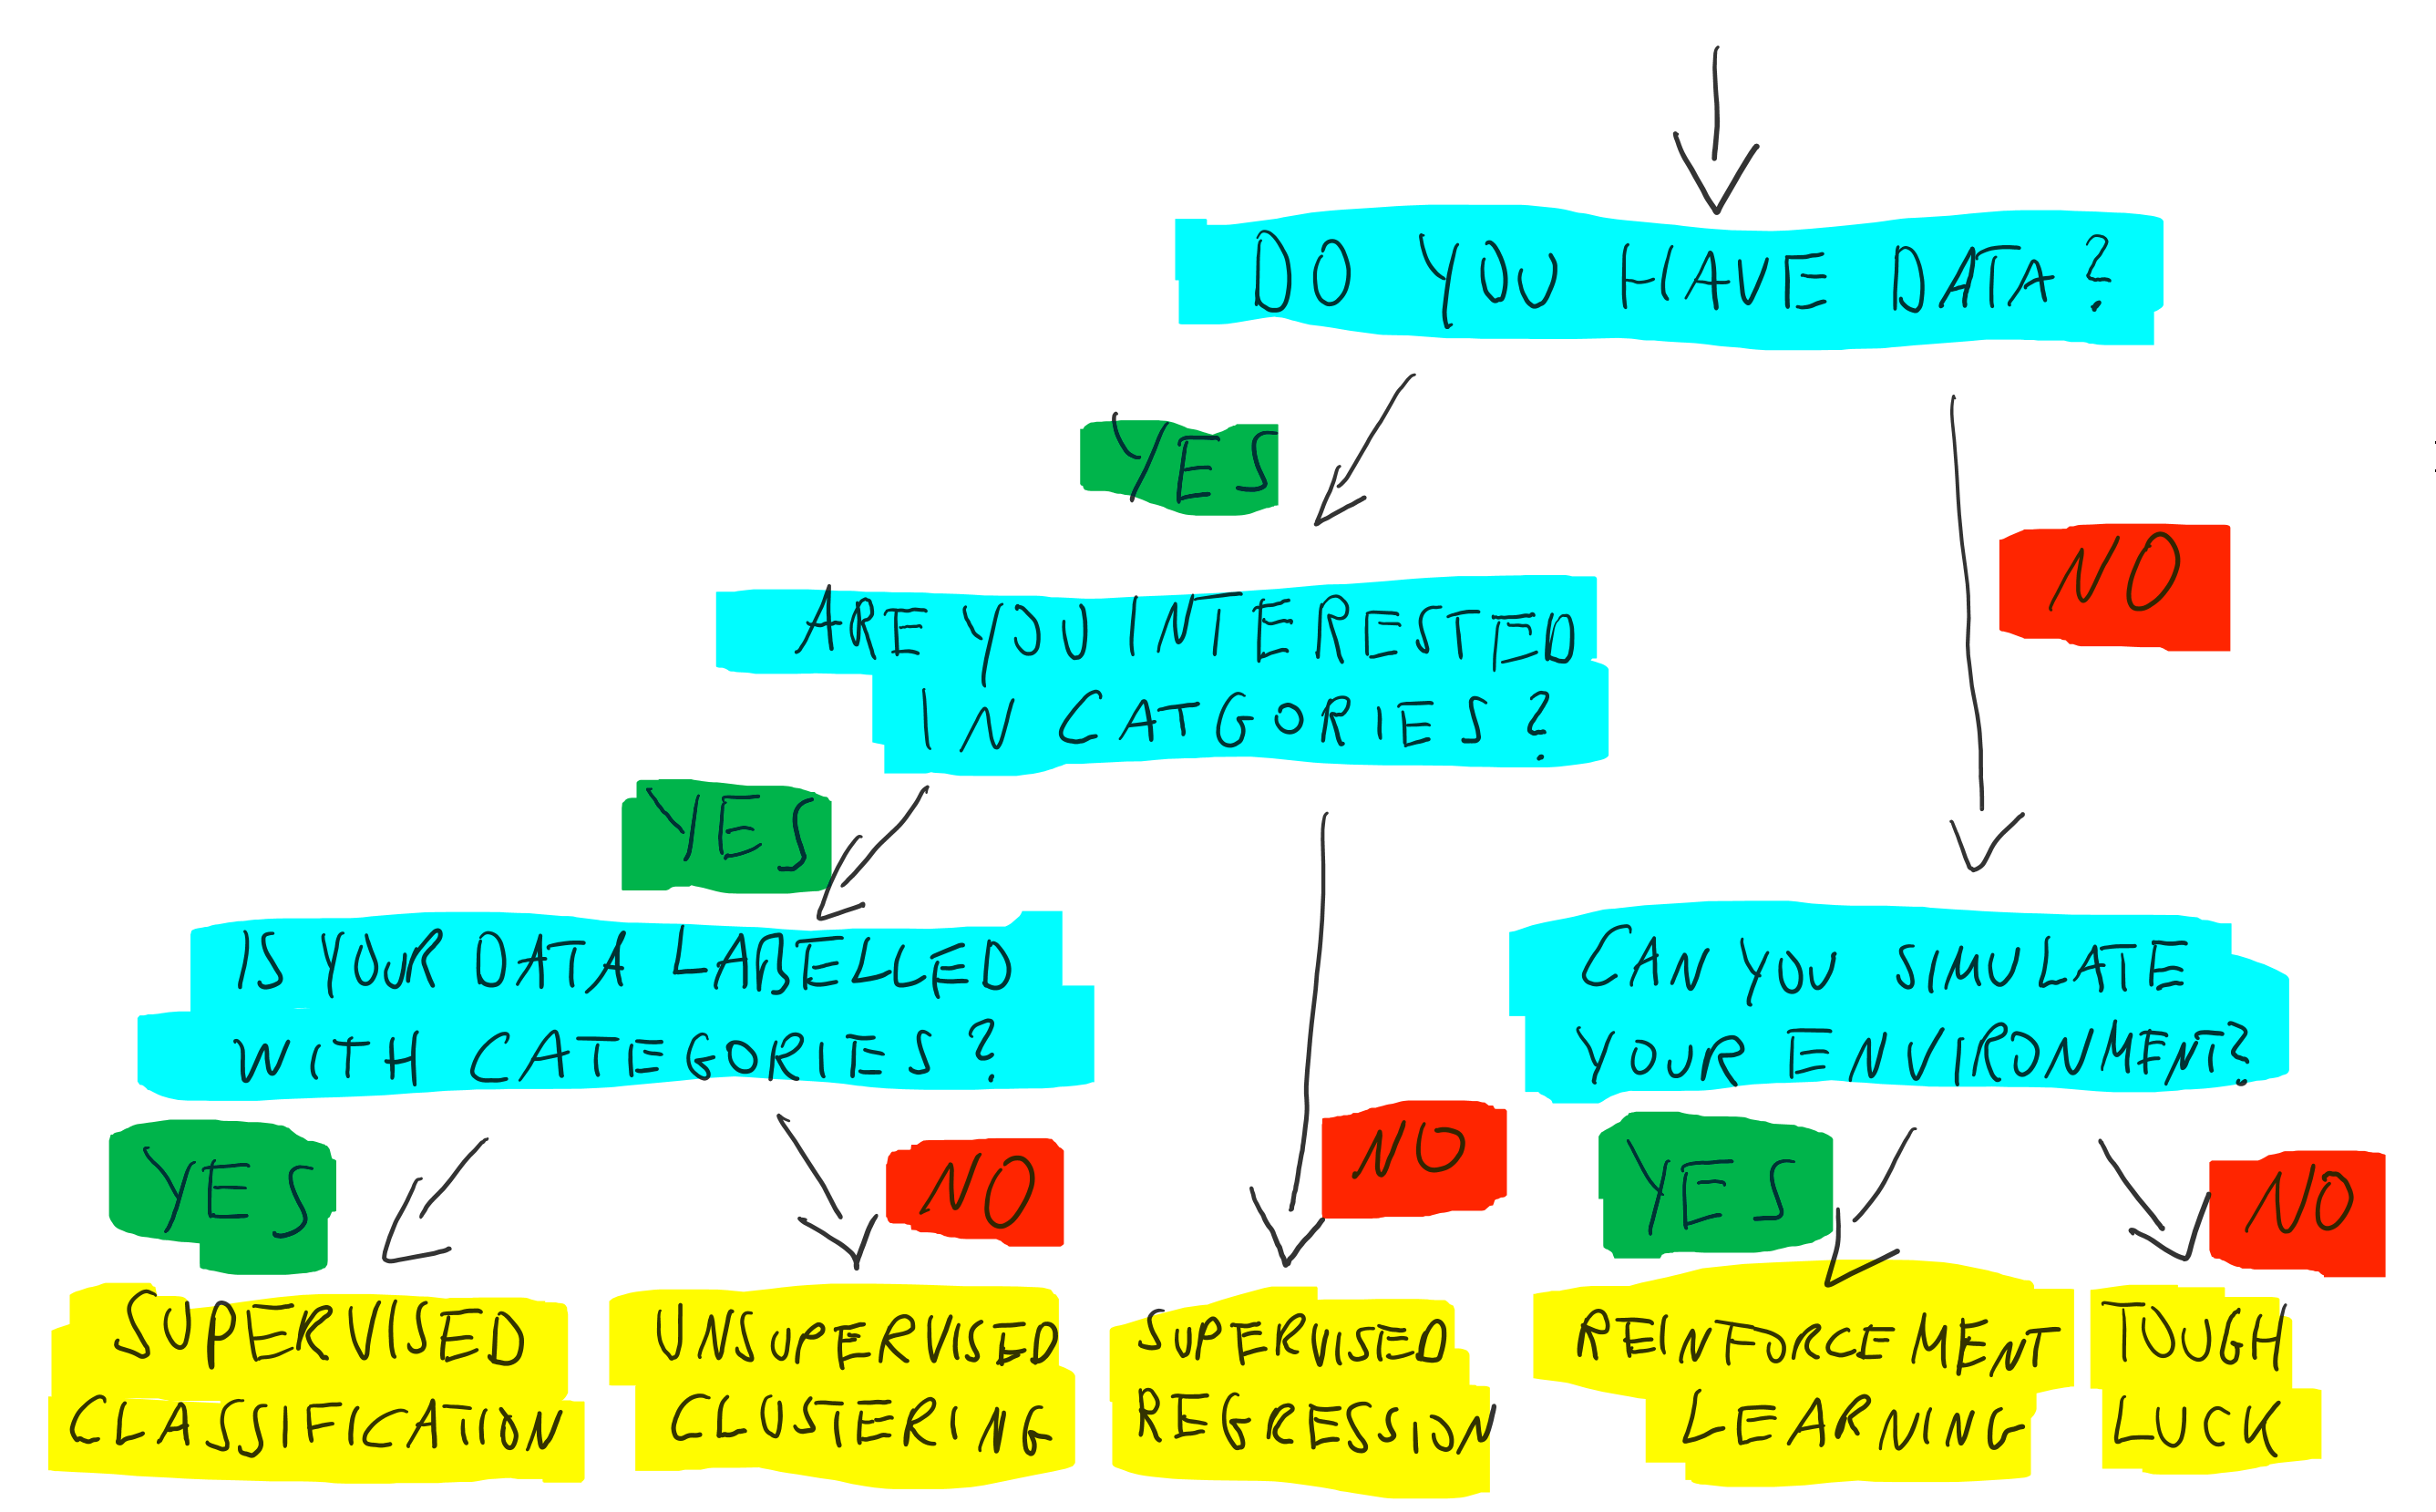 DO YOU HAVE DATA?
YES
NO
ARE YOU INTERESTED
IN CATGORIES?
YES
IS YOUR DATA LABELED
WITH CATEGORIES?
CAN YOU SIMULATE
YOUR ENVIRONMENT?
YES
NO
NO
YES
NO
SUPERVISED
CLASSIFICATION
UNSUPERVISED
CLUSTERING
SUPERVISED
REGRESSION
REINFORCEMENT
LEARNING
TOUGH
LUCK